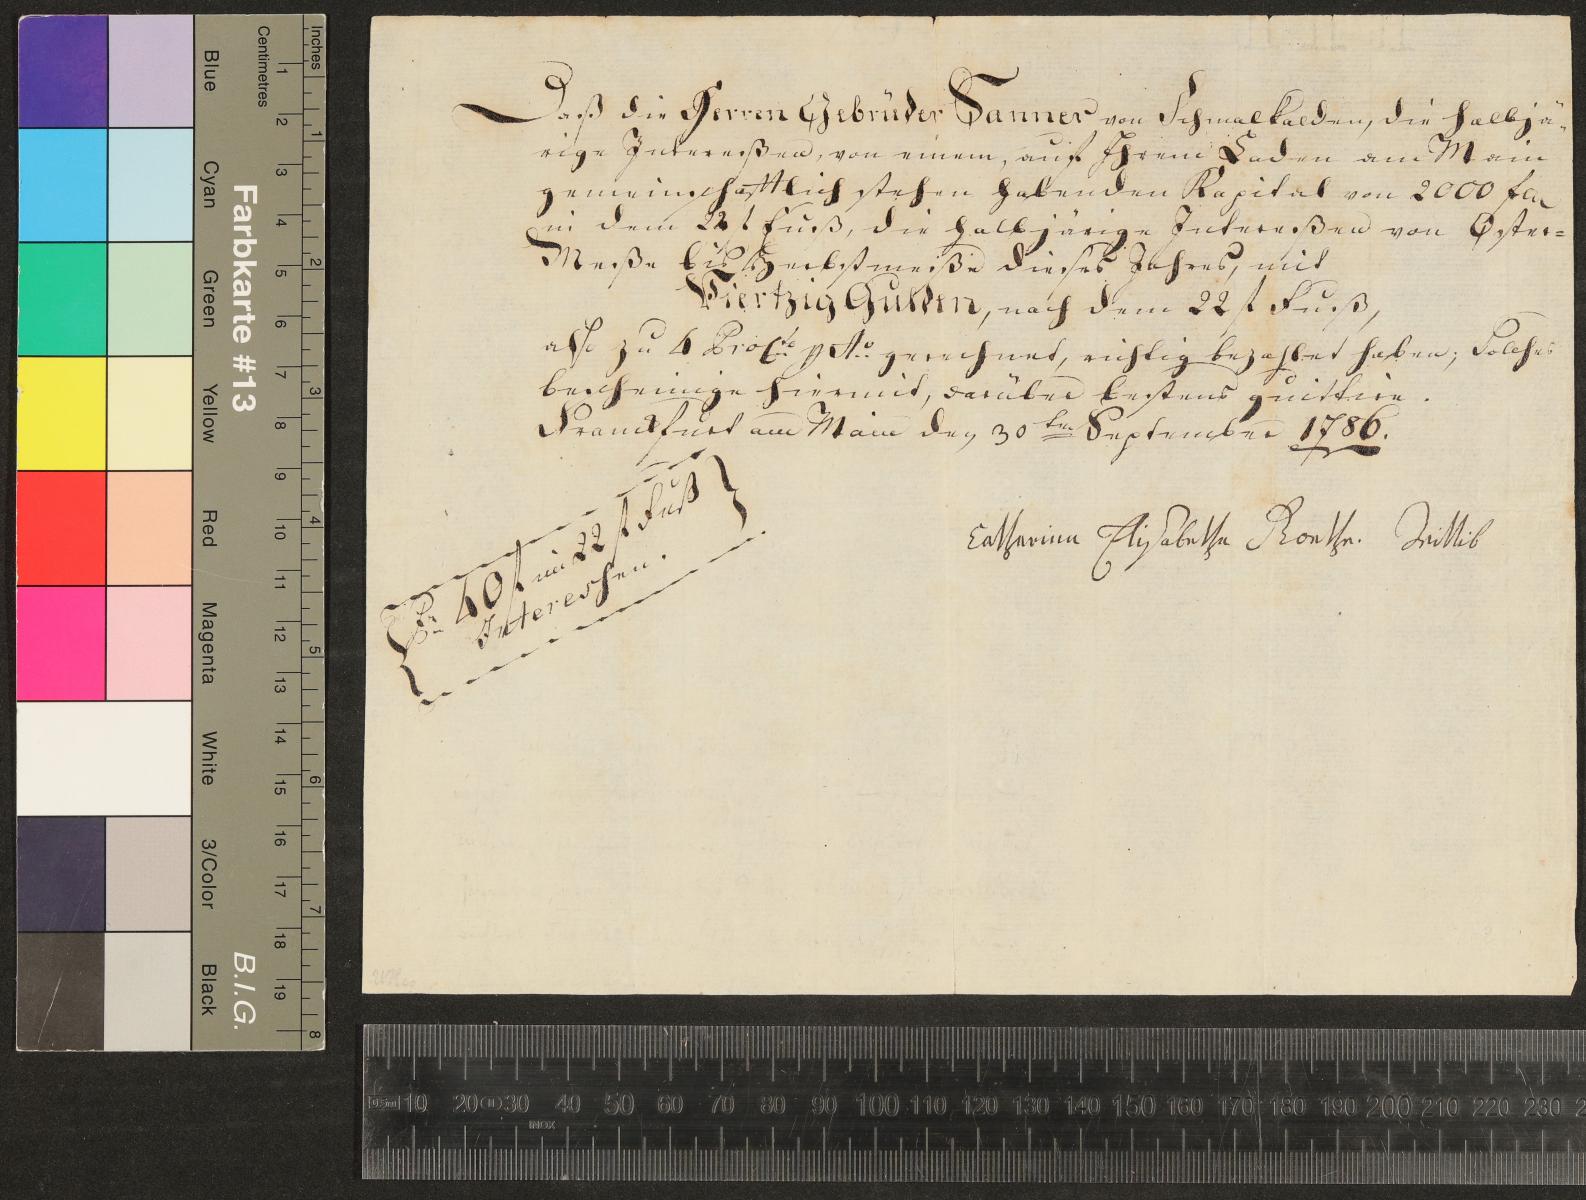 Daß die Herren Gebrüder Sanner von Schmalkalden, die halbjä-
rige Intereßen, von einem, auf Ihrem Laden am Main
gemeinschafftlich stehen habenden Kapital von 2000 fln
in dem 22 f Fuß, die halbjärige Intereßen von Oster=
Meße bis Herbstmeße dieses Jahres, mit
Viertzig Gulden, nach dem 22 f Fuß,
also zu 4 Procto p Ao gerechnet, richtig bezahlet haben; Solches
bescheinige hiermit, darüber bestens quittire.
Franckfurt am Main den 30ten September 1786.
Catharina Elisabetha Koethe. Wittib
Pr 40 f im 22 f Fuß
Interessen.
Farbkarte #13
B.I.G.
Centimetres
Inches
Blue
Cyan
Green
Yellow
Red
Magenta
White
3/Color
Black
1 2 3 4 5 6 7 8 9 10 11 12 13 14 15 16 17 18 19
1 2 3 4 5 6 7 8
10 20 30 40 50 60 70 80 90 100 110 120 130 140 150 160 170 180 190 200 210 220 230
INOX